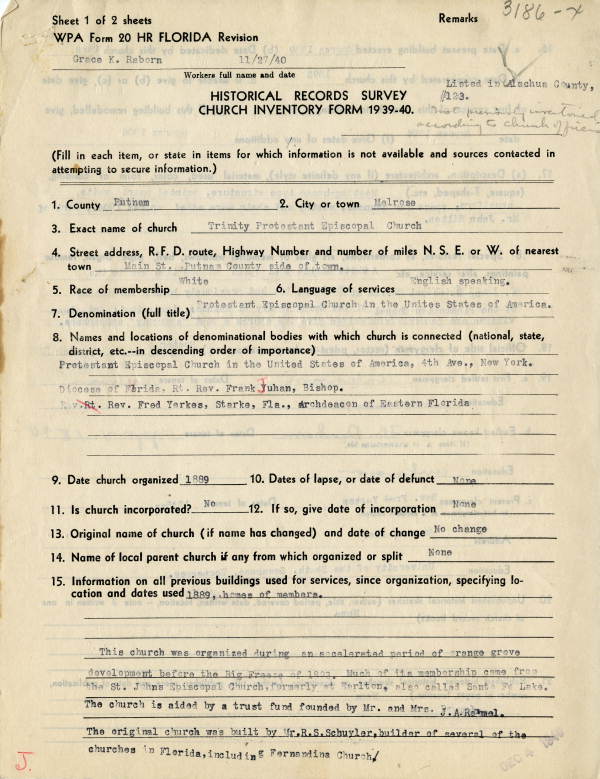 Sheet 1 of 2 sheets
Remarks
3186-x
WPA Form 20 HR FLORIDA Revision
Grace K. Raborn 11/27/40
Workers full name and date
Listed in Alachua County,
#123.
Not previously inventoried
according to church officers
HISTORICAL RECORDS SURVEY
CHURCH INVENTORY FORM 1939-40.
(Fill in each item, or state in items for which information is not available and sources contacted in
attempting to secure information.)
1. County Putnam 2. City or town Melrose
3. Exact name of church Trinity Protestant Episcopal Church
4. Street address, R. F. D. route, Highway Number and number of miles N. S. E. or W. of nearest
town Main St. Putnam County side of town.
5. Race of membership White 6. Language of services English speaking.
7. Denomination (full title) Protestant Episcopal Church in the Unites States of America.
8. Names and locations of denominational bodies with which church is connected (national, state,
district, etc.--in descending order of importance)
Protestant Episcopal Church in the United States of America, 4th Ave., New York.
Diocese of Florida. Rt. Rev. Frank Juhan, Bishop.
Rev. Rt. Rev. Fred Yerkes, Starke, Fla., Archdeacon of Eastern Florida
9. Date church organized 1889 10. Dates of lapse, or date of defunct None
11. Is church incorporated? No 12. If so, give date of incorporation None
13. Original name of church (if name has changed) and date of change No change
14. Name of local parent church if any from which organized or split None
15. Information on all previous buildings used for services, since organization, specifying lo-
cation and dates used 1889, homes of members.
This church was organized during an accelerated period of orange grove
development before the Big Freeze of Much of its membership came from
the St. Johns Episcopal Church, formerly at Earlton, also called Santa Fe Lake.
The church is aided by a trust fund founded by Mr. and Mrs. J.A.
The original church was built by Mr.R.S.Schuyler,builder of several of the
churches in Florida,including Fernandina Church.
J.
DEC 4 1940